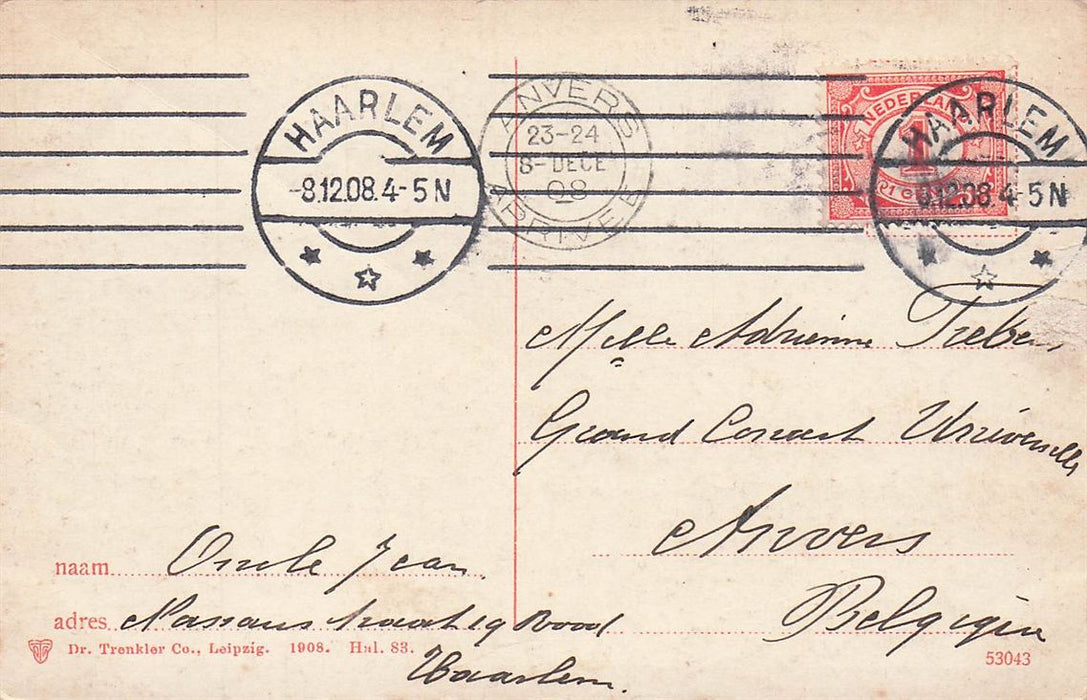 HAARLEM
8.12.08.4-5N
ANVERS
23-24
8-DECE
08
ARRIVEE
NEDERLAND
1
HAARLEM
8.12.08.4-5N
Melle Adrienne Trebers
Grand Concert Universelle
Anvers
Belgigue
naam Oncle Jean.
adres Nassaustraat 19 Rood
Haarlem.
Dr. Trenkler Co., Leipzig. 1908. Hal. 83.
53043